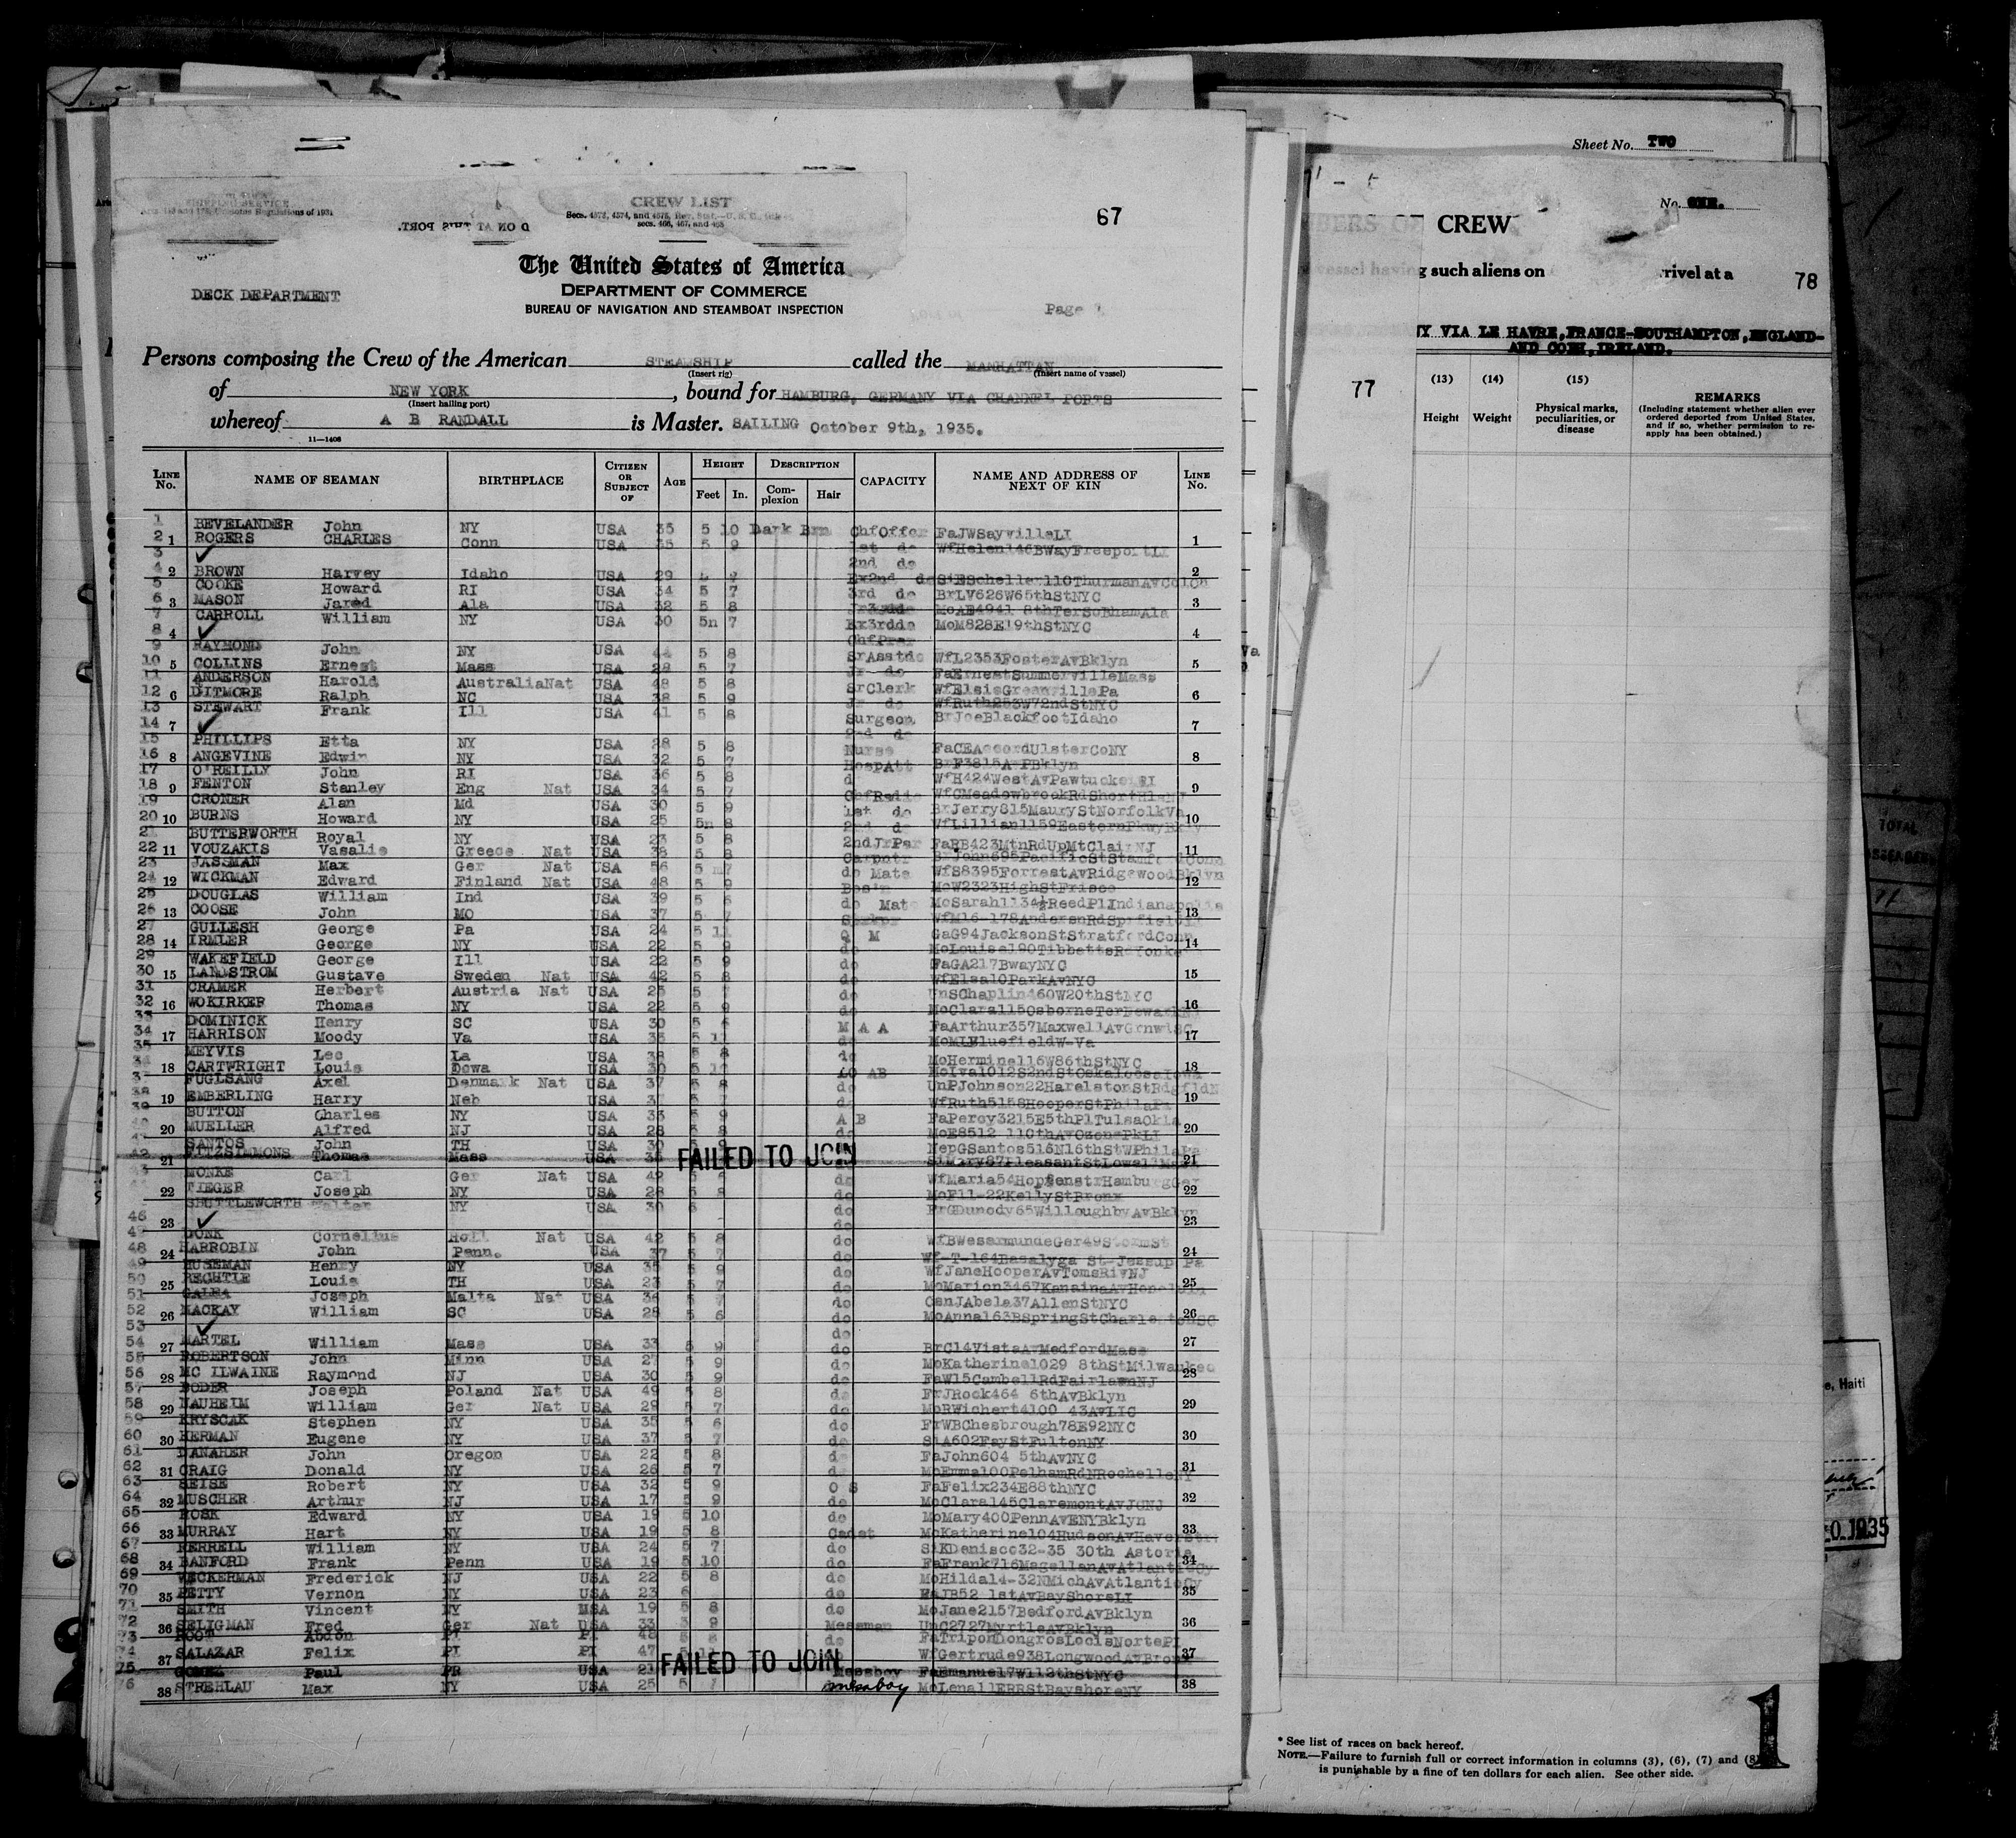 Sheet No. TWO
CREW LIST
67
No. ONE.
CREW
The United States of America
such aliens on rival at a
78
DECK DEPARTMENT
DEPARTMENT OF COMMERCE
BUREAU OF NAVIGATION AND STEAMBOAT INSPECTION
Page
VIA LE HAVRE, FRANCE-SOUTHAMPTON, ENGLAND-
AND COBH, IRELAND.
Persons composing the Crew of the American STEAMSHIP called the MANHATTAN
(Insert rig) (Insert name of vessel)
of NEW YORK, bound for HAMBURG, GERMANY VIA CHANNEL PORTS
(Insert hailing port)
whereof A B RANDALL is Master. SAILING October 9th, 1935.
11—1408
77
(13) (14) (15) REMARKS
Height Weight Physical marks, peculiarities, or disease (Including statement whether alien ever ordered deported from United States, and if so, whether permission to re-apply has been obtained.)
LINE No. NAME OF SEAMAN BIRTHPLACE CITIZEN OR SUBJECT OF AGE HEIGHT Feet In. DESCRIPTION Complexion Hair CAPACITY NAME AND ADDRESS OF NEXT OF KIN LINE No.
1 BEVELANDER John NY USA 35 5 10 Dark Brn ChfOffcr FaJWSayvilleLI
2 1 ROGERS CHARLES Conn USA 35 5 9 1st do WfHelen146BWayFreeportLI 1
3 ✓ 2nd do
4 2 BROWN Harvey Idaho USA 29 Ex2nd do 2
5 COOKE Howard RI USA 34 5 7 3rd do BrLV626W65thStNYC
6 3 MASON Jared Ala USA 32 5 8 MoAB4941 8thTerSoBhamAla 3
7 CARROLL William NY USA 30 5n 7 Ex3rddo MoM828E19thStNYC
8 4 ✓ 4
9 RAYMOND John NY USA 44 5 8 SrAsstdo WfL2353FosterAvBklyn
10 5 COLLINS Ernest Mass USA 28 5 7 Jr do FaErnestSummervilleMass 5
11 ANDERSON Harold AustraliaNat USA 48 5 8 SrClerk WfElsieGreenvillePa
12 6 DITMORE Ralph NC USA 38 5 9 Jr do WfRuth253W72ndStNYC 6
13 STEWART Frank Ill USA 41 5 8 Surgeon BrJoeBlackfootIdaho
14 7 ✓ 2nd do 7
15 PHILLIPS Etta NY USA 28 5 8 Nurse FaCEAccordUlsterCoNY
16 8 ANGEVINE Edwin NY USA 32 5 7 HospAtt BrF3815AvPBklyn 8
17 O'REILLY John RI USA 36 5 8 WfH424WestAvPawtucket RI
18 9 FENTON Stanley Eng Nat USA 34 5 7 ChfRadio 9
19 CRONER Alan Md USA 30 5 9 1st do BrJerry815MauryStNorfolkVa
20 10 BURNS Howard NY USA 25 5n 8 2nd do WfLillian1159EasternPkwyBkly 10
21 BUTTERWORTH Royal NY USA 23 5 8 2ndJrPsr FaRB423MtnRdUpMtClairNJ
22 11 VOUZAKIS Vasalis Greece Nat USA 38 5 8 Carpntr BrJohn695PacificStStamfordConn 11
23 JASSMAN Max Ger Nat USA 56 5 do Mate WfS8395ForrestAvRidgewoodBklyn
24 12 WICKMAN Edward Finland Nat USA 48 5 9 Bos'n MoW2323HighStFrisco 12
25 DOUGLAS William Ind USA 39 5 6 do Mate MoSarah1134½ReedPlIndianapolis
26 13 COOSE John MO USA 37 5 7 13
27 GULLESH George Pa USA 24 5 11 Q M GaG94JacksonStStratfordConn
28 14 IRMLER George NY USA 22 5 9 do MoLouise190TibbettsRdYonke 14
29 WAKEFIELD George Ill USA 22 5 9 do FaGA217BwayNYC
30 15 LANDSTROM Gustave Sweden Nat USA 42 5 8 do WfElsa10ParkAvNYC 15
31 CRAMER Herbert Austria Nat USA 25 5 do UnSChaplin460W20thStNYC
32 16 WOKIRKER Thomas NY USA 22 5 9 do MoClara115OsborneTerNewarkNJ 16
33 DOMINICK Henry SC USA 30 5 6 M A A FaArthur357MaxwellAvGrnwlSC
34 17 HARRISON Moody Va USA 35 5 11 do MoMLBluefieldW-Va 17
35 MEYVIS Leo La USA 38 5 8 do MoHermine116W86thStNYC
18 CARTWRIGHT Louis Iowa USA 30 5 AB MoIva1012S2ndStOskaloosaIowa 18
FUGLSANG Axel Denmark Nat USA 37 5 8 do UnPJohnson22HarelstonStRdgfldN
19 EMBERLING Harry Neb USA 37 5 do WfRuth5158HooperStPhilaPa 19
BUTTON Charles NY USA 33 5 9 A B FaPercy3215E5thPlTulsaOkla
20 MUELLER Alfred NJ USA 28 5 8 do MoE8512 110thAvOzonePkLI 20
SANTOS John TH USA 30 NepGSantos516N16thStWPhilaPa
42 21 FITZSIMMONS Thomas Mass USA FAILED TO JOIN SiMary87PleasantStLowellMass 21
MONKE Carl Ger Nat USA 42 5 do WfMaria54HopfenstrHamburgGer
22 TIEGER Joseph NY USA 28 5 8 do MoF11-22KellyStBronx 22
SHUTTLEWORTH Walter NY USA 30 6 do FrGDunody65WilloughbyAvBklyn
46 23 ✓ do 23
DONK Cornelius Holl Nat USA 42 5 8 do
48 24 HARROBIN John Penn. USA 37 5 7 do Wf-T-164Basalyga St-Jessup Pa 24
49 HUSEMAN Henry NY USA 35 5 9 do WfJaneHooperAvTomsRivNJ
50 25 RECHTLE Louis TH USA 23 5 7 do 25
51 GALEA Joseph Malta Nat USA 36 5 7 do CsnJAbela37AllenStNYC
52 26 MACKAY William SC USA 28 5 6 do MoAnna163BSpringStCharlestonSC 26
53 ✓ do
54 27 MARTEL William Mass USA 33 5 9 do BrC14VistaAvMedfordMass 27
55 ROBERTSON John Minn USA 27 5 9 do MoKatherine1029 8thStMilwaukee
56 28 MC ILWAINE Raymond NJ USA 30 5 9 do FaW15CambellRdFairlawnNJ 28
57 BODER Joseph Poland Nat USA 49 5 8 do FrJRock464 6thAvBklyn
58 29 NAUHEIM William Ger Nat USA 29 5 7 do MoRWichert4100 43AvLIC 29
59 KRYSCAK Stephen NY USA 35 5 6 do FrWBChesbrough78E92NYC
60 30 HERMAN Eugene NY USA 37 5 7 do SiA602FayStFultonNY 30
61 DANAHER John Oregon USA 22 5 8 do FaJohn604 5thAvNYC
62 31 CRAIG Donald NY USA 26 5 7 do MoEmma100PelhamRdNRochelleNY 31
63 SEISE Robert NY USA 32 5 9 O S FaFelix234E88thNYC
64 32 MUSCHER Arthur NJ USA 17 5 9 do MoClara145ClaremontAvJCNJ 32
65 ROSK Edward NY USA 19 5 10 do MoMary400PennAvENYBklyn
66 33 MURRAY Hart NY USA 19 5 8 Cadet MoKatherine104HudsonAvHaverstr 33
67 FERRELL William NY USA 24 5 7 do SiKDenisco32-35 30th Astoria
68 34 BANFORD Frank Penn USA 19 5 10 do FaFrank716MagellanAvAtlanticCy 34
69 VECKERMAN Frederick NJ USA 22 5 8 do MoHilda14-32NMichAvAtlanticCy
70 35 PETTY Vernon NY USA 23 6 do FaJB52 1stAvBayShoreLI 35
71 SMITH Vincent NY USA 19 5 8 do MoJane2157BedfordAvBklyn
72 36 SELIGMAN Fred Ger Nat USA 33 5 9 Messman UnC2727MyrtleAvBklyn 36
73 ROOT Abdon PI PI 48 5 8 do
74 37 SALAZAR Felix PI PI 47 5 WfGertrude938LongwoodAvBronx 37
75 GOMEZ Paul PR USA 21 FAILED TO JOIN Messboy FaEmanuel7W112thStNYC
76 38 STREHLAU Max NY USA 25 5 7 messboy 38
TOTAL
e, Haiti
1935
1
* See list of races on back hereof.
NOTE.—Failure to furnish full or correct information in columns (3), (6), (7) and (8)
is punishable by a fine of ten dollars for each alien. See other side.